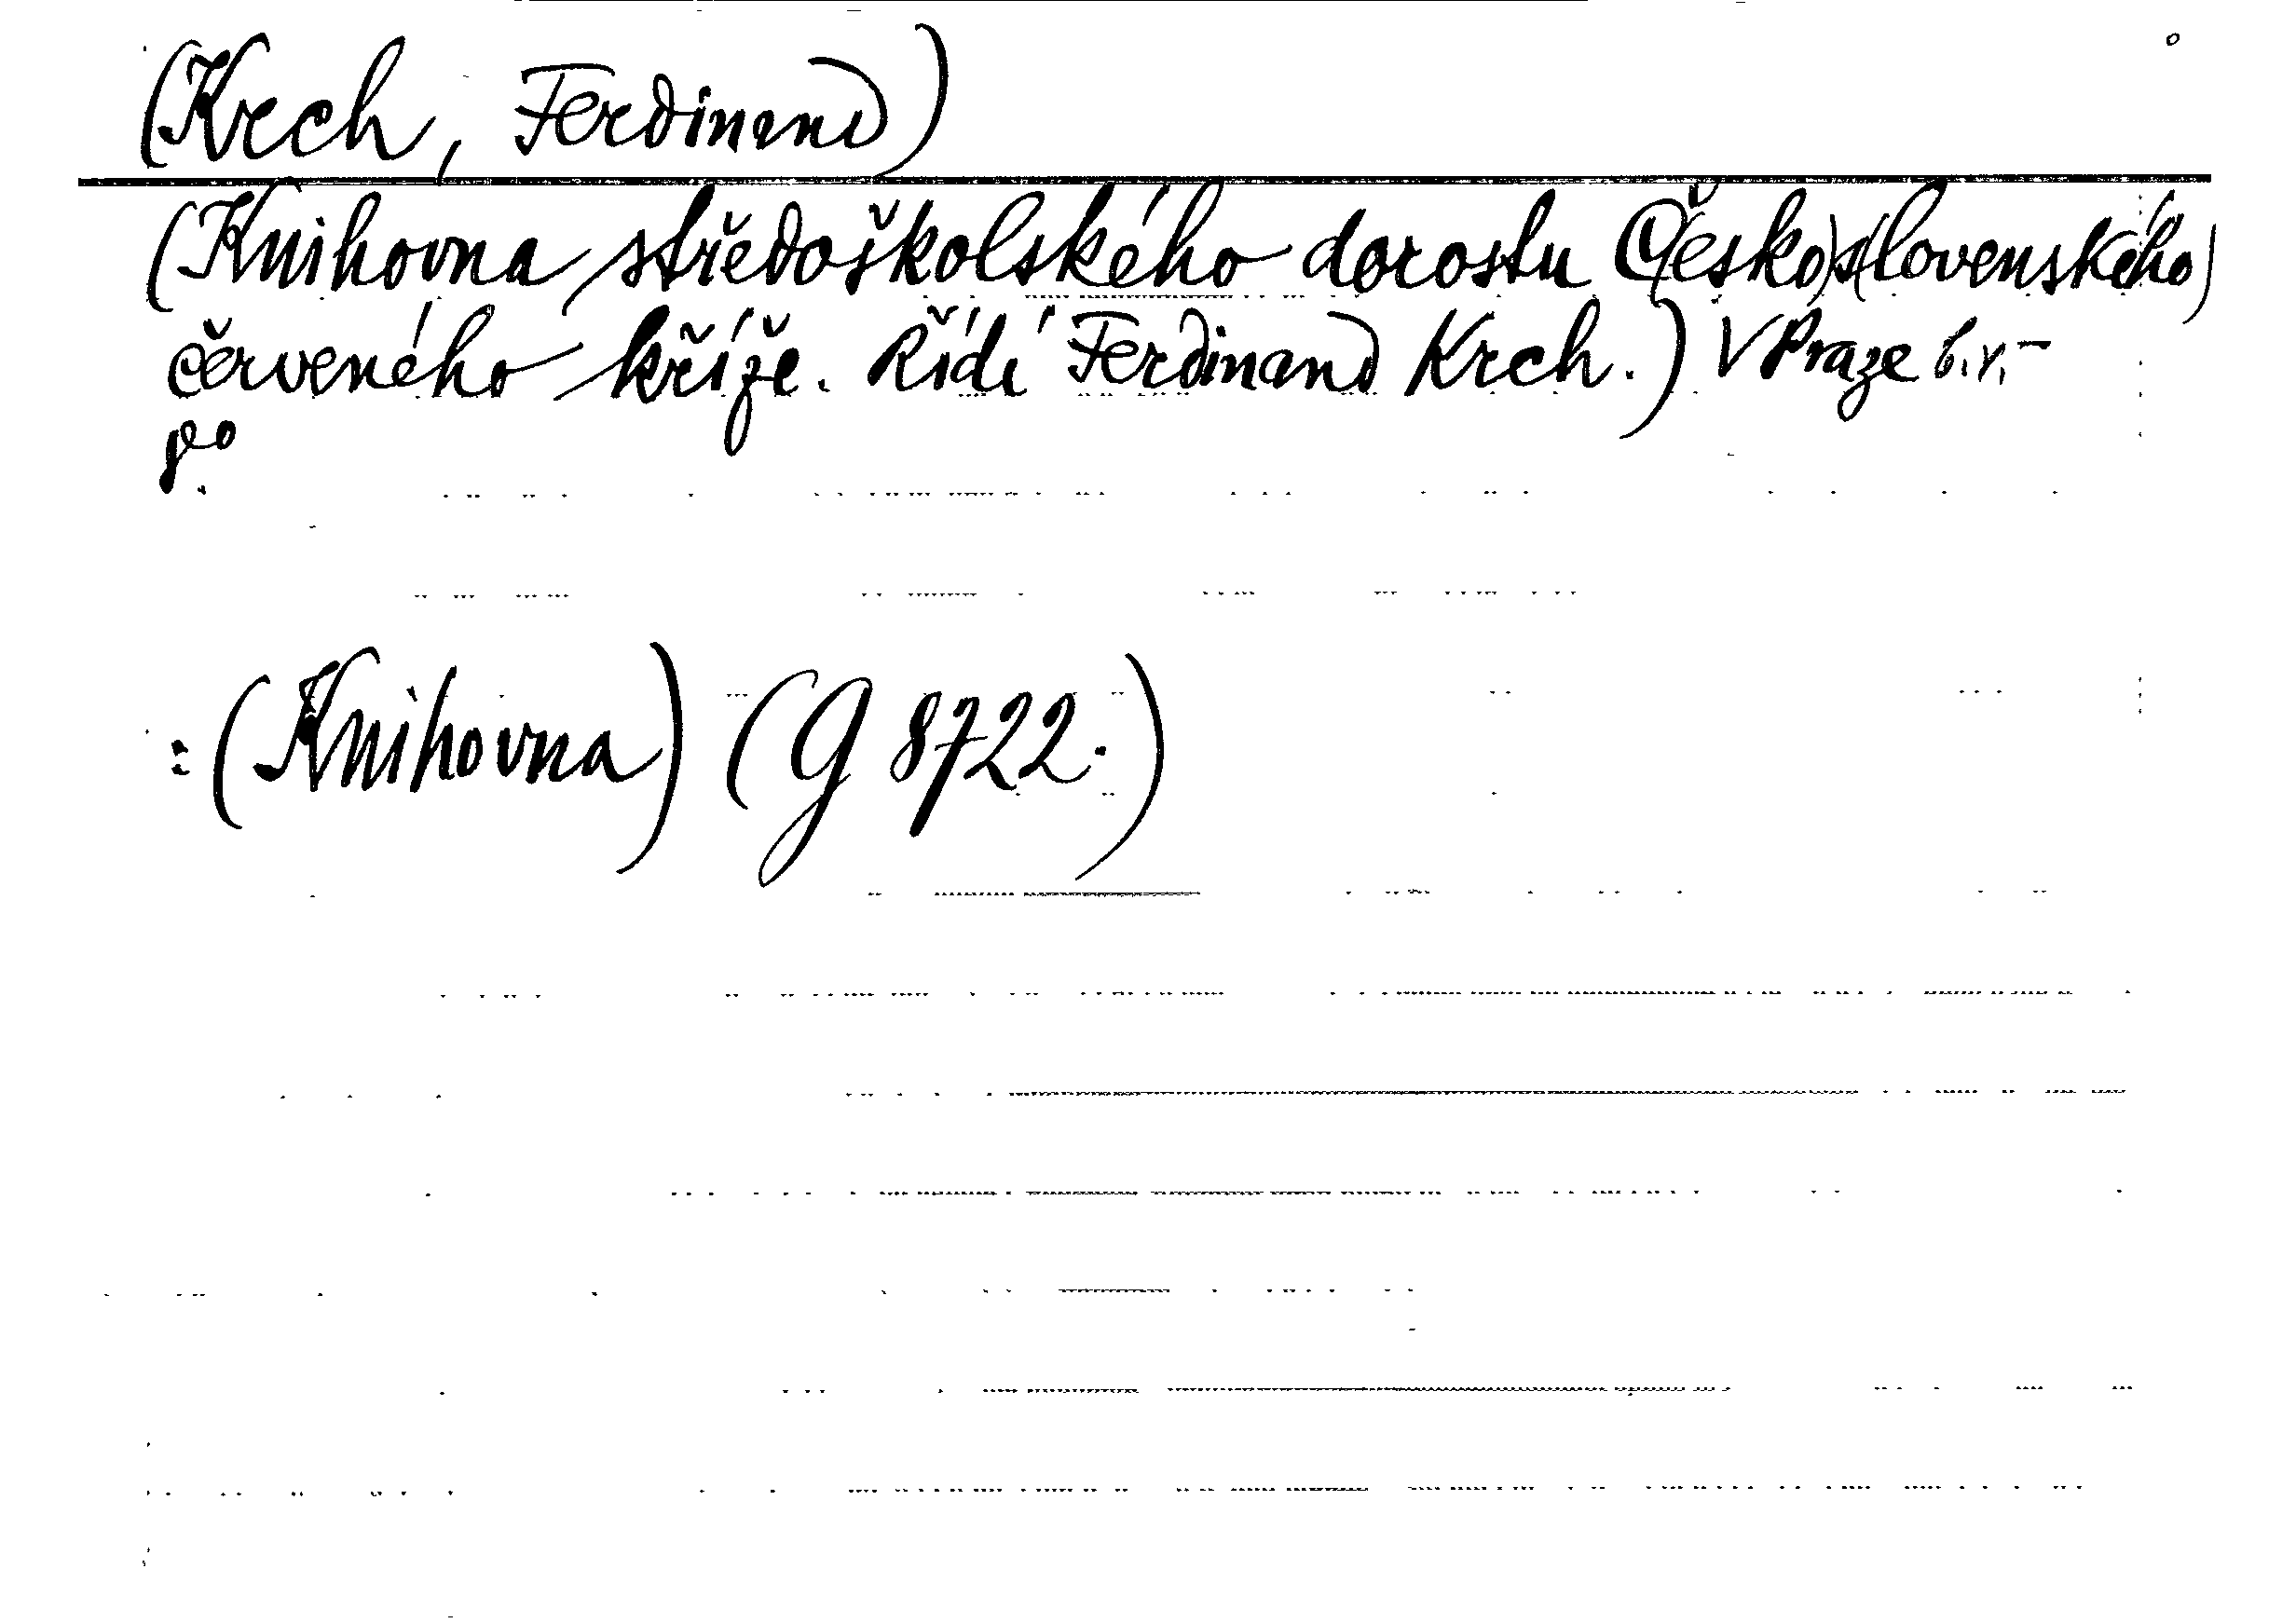 (Krch, Ferdinand)
(Knihovna středoškolského dorostu (Česko)s(lovenského)
červeného kříže. Řídí Ferdinand Krch.) V Praze b.r.-
8°.
:(Knihovna) (G 8722.)